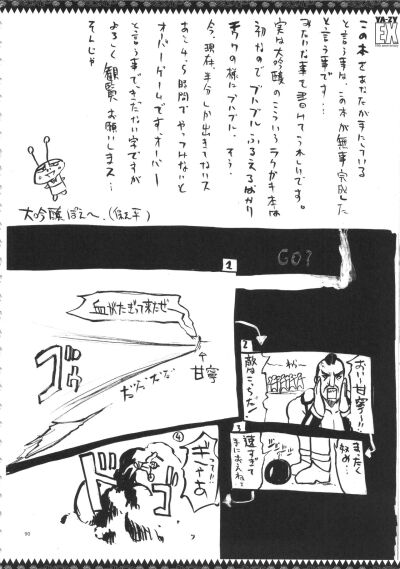 この本であなたが手にしている
と言う事は、この本が無事完成した
と言う事です…
みたいな事を書けてうれしいです。
実は大吟醸のこういうラクガキ本は
初なのでブルブルふるえるばかり
モウクの様にブルブル、そう…
今、現在、半分しか出きてないス
あと4、5時間でやっつけないと
オーバーゲームです、オーバー
と言う事で、きったない字ですが
よろしく観覧お願いします…
そんじゃ
大吟醸ぽえ〜、
EX
GO?
1
血がたぎって来たぜ
ゴゥ
甘寧
2
おい!甘寧!!!
敵はこっちだ!
わー
3
まったく
奴め…
速すぎて
手におえねえ
4
ぎっ…!!
ぎさま
ドドゴ
90